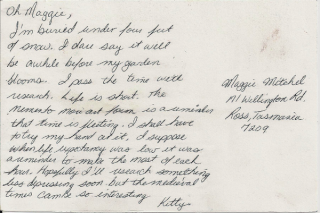 Oh Maggie,
I'm buried under four feet
of snow. I dare say it will
be awhile before my garden
blooms. I pass the time with
research. Life is short. The
memento mori art form is a reminder
that time is fleeting. I shall have
to try my hand at it. I suppose
when life expectancy was low it was
a reminder to make the most of each
hour. Hopefully I'll research something
less depressing soon. But the medieval
times can be so interesting
Kitty
Maggie Mitchel
Wellington Rd.
Ross, Tasmania
7209